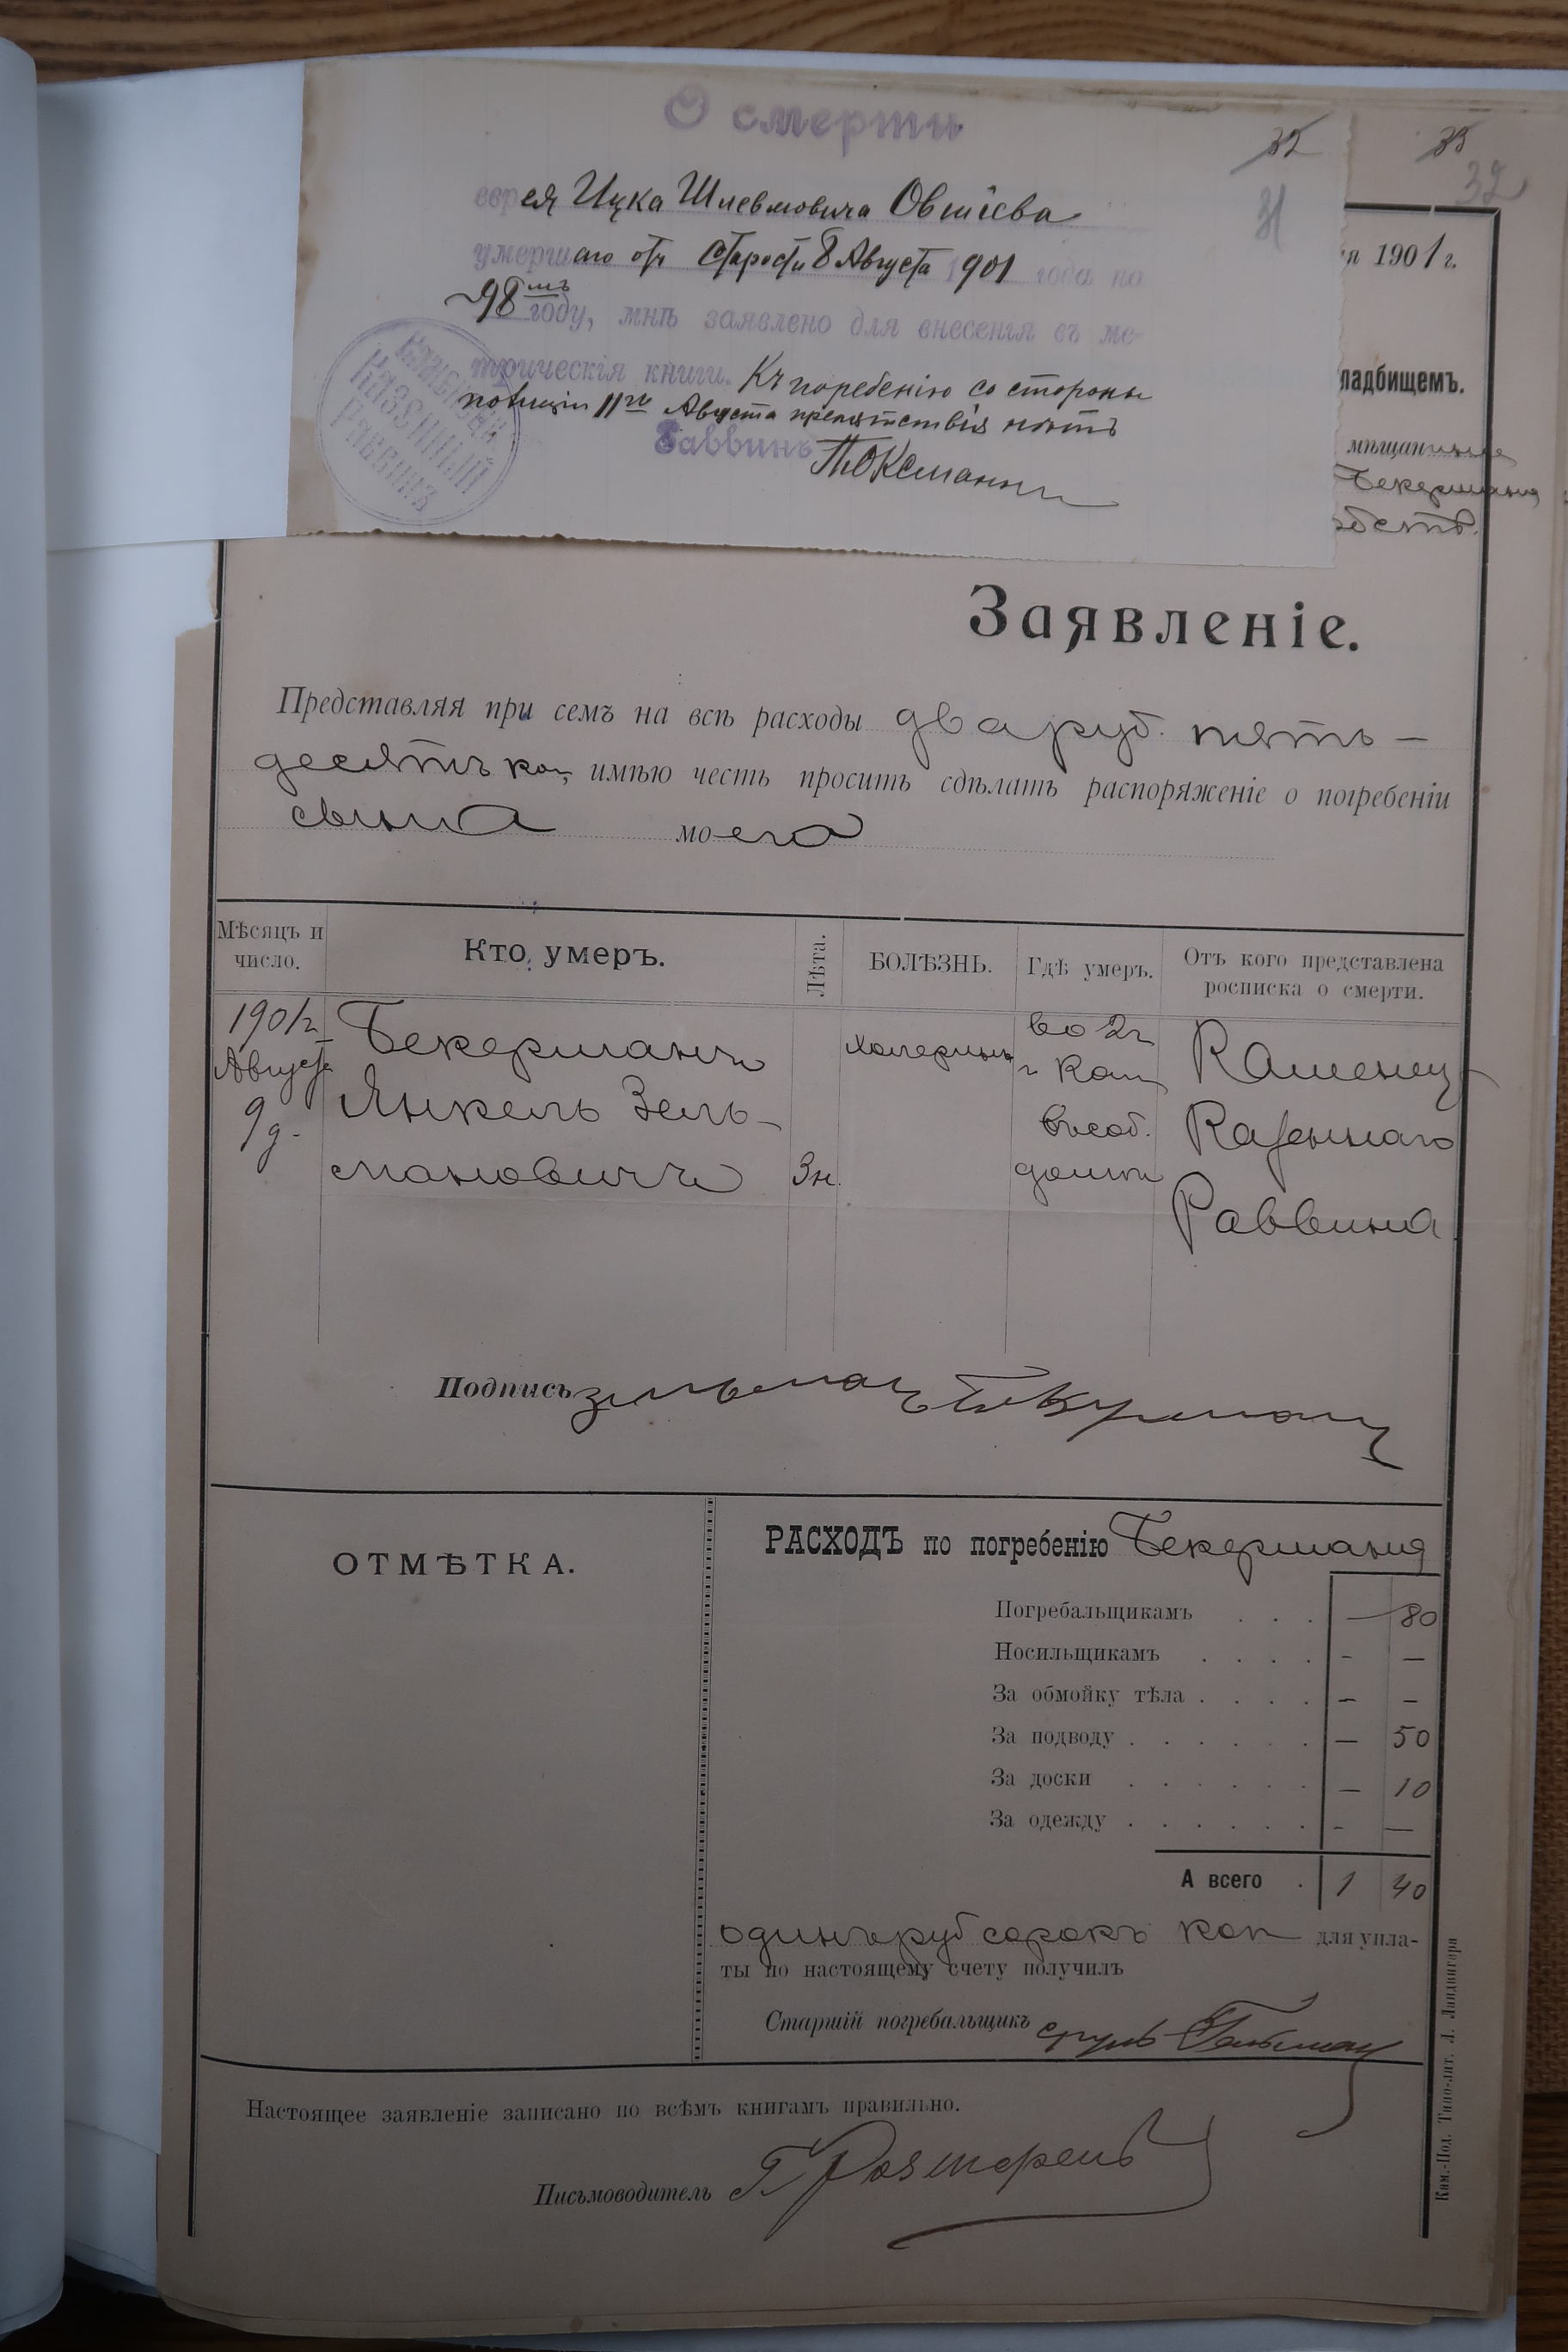 О смерти
32
33
32
31
еврея Ицка Шлевмовича Овшіева
умершаго отъ старости 8 Августа 1901 года на
98 мъ году, мнѣ заявлено для внесенія въ ме-
трическія книги. Къ погребенію со стороны
полиціи 11го Августа препятствія нѣтъ
Раввинъ
Казенный
Раввинъ
я 1901 г.
ладбищемъ.
мѣщанина
Бекермана
Заявленіе.
Представляя при семъ на всѣ расходы два руб. пять-
десятъ коп, имѣю честь просить сдѣлать распоряженіе о погребеніи
сына моего
Мѣсяцъ и число.
Кто умеръ.
Лѣта.
БОЛѢЗНЬ.
Гдѣ умеръ.
Отъ кого представлена росписка о смерти.
1901 г.
Августа
9 д.
Бекерманъ
Янкель Зель-
мановичъ
3 н.
во 2 ч
г Кам
въ соб.
домѣ
Каменец
Казеннаго
Раввина
Подпись Зельман Бекерман
ОТМѢТКА.
РАСХОДЪ по погребенію Бекермана
Погребальщикамъ . . . — 80
Носильщикамъ . . . . - —
За обмойку тѣла . . . . — -
За подводу . . . . . . — 50
За доски . . . . . . — 10
За одежду . . . . . . - —
А всего . 1 40
одинъ руб сорокъ коп для упла-
ты по настоящему счету получилъ
Старшій погребальщикъ сруль
Настоящее заявленіе записано по всѣмъ книгамъ правильно.
Письмоводитель
Кам.-Под. Типо-лит. Л. Ландвигера